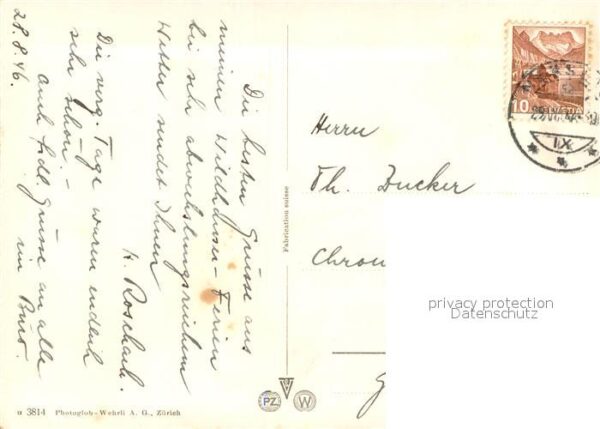 Die besten Grüsse aus
meinen Wildhauser-Ferien
bei sehr abwechslungsreichem
Wetter sendet Ihnen
H. Roschach.
Die verg. Tage waren endlich
sehr schön. -
Auch frdl. Grüsse an alle
im Büro.
28.8.46.
Herrn
Th. Zucker
Chron
privacy protection
Datenschutz
Fabrication suisse
10
HELVETIA
XII
PZ
W
a 3814 Photoglob-Wehrli A. G., Zürich